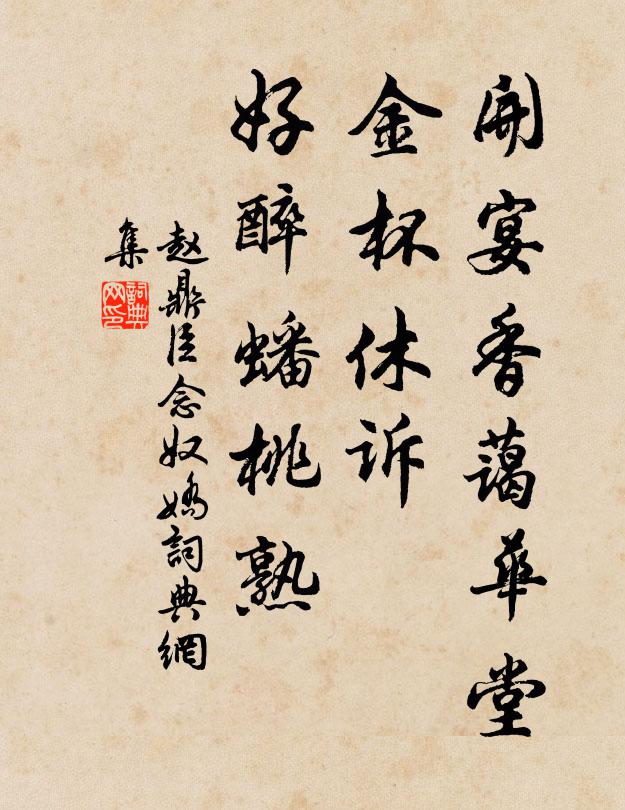 開宴香藹華堂
金杯休訴
好醉蟠桃熟
赵鼎臣念奴嬌詞典網
集
詞典
网印